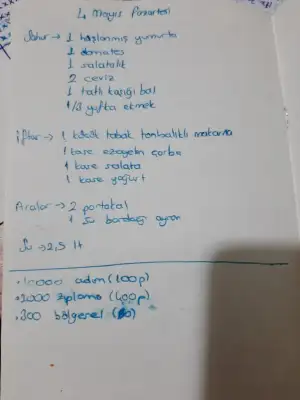 4 Mayıs Pazartesi
Sahur → 1 haşlanmış yumurta
1 domates
1 salatalık
2 ceviz
1 tatlı kaşığı bal
1/3 yufka ekmek
iftar → 1 küçük tabak tonbalıklı makarna
1 kase ezogelin çorba
1 kase salata
1 kase yoğurt
Aralar → 2 portakal
1 su bardağı ayran
Su → 2,5 lt
• 10000 adım (100p)
• 2000 zıplama (400p)
• 300 bölgesel